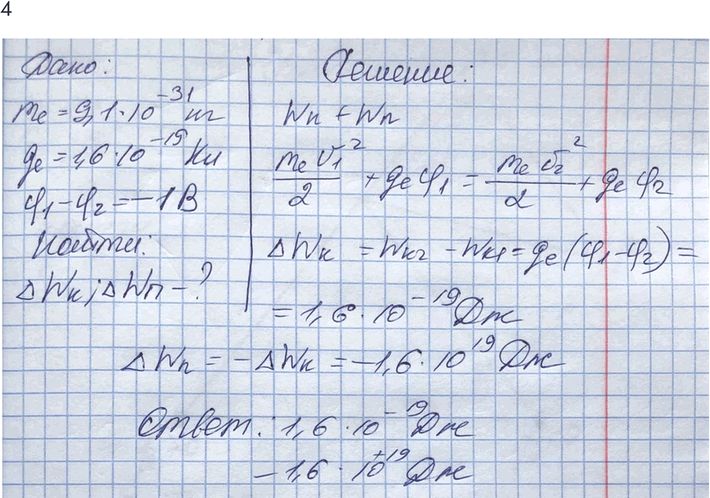 4
Дано:
mе = 9,1·10⁻³¹ кг
qе = 1,6·10⁻¹⁹ Кл
φ₁-φ₂ = -1В
Найти:
ΔWк; ΔWп - ?
Решение:
Wк + Wп
mеV₁²/2 + qеφ₁ = mеV₂²/2 + qеφ₂
ΔWк = Wк₂ - Wк₁ = qе(φ₁-φ₂) =
= 1,6·10⁻¹⁹ Дж
ΔWп = -ΔWк = -1,6·10¹⁹ Дж
Ответ: 1,6·10⁻¹⁹ Дж
-1,6·10⁺¹⁹ Дж